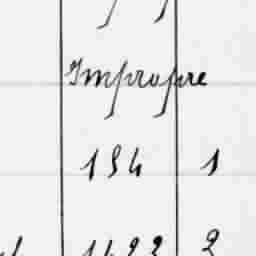 Impropre
154 1
1422 2